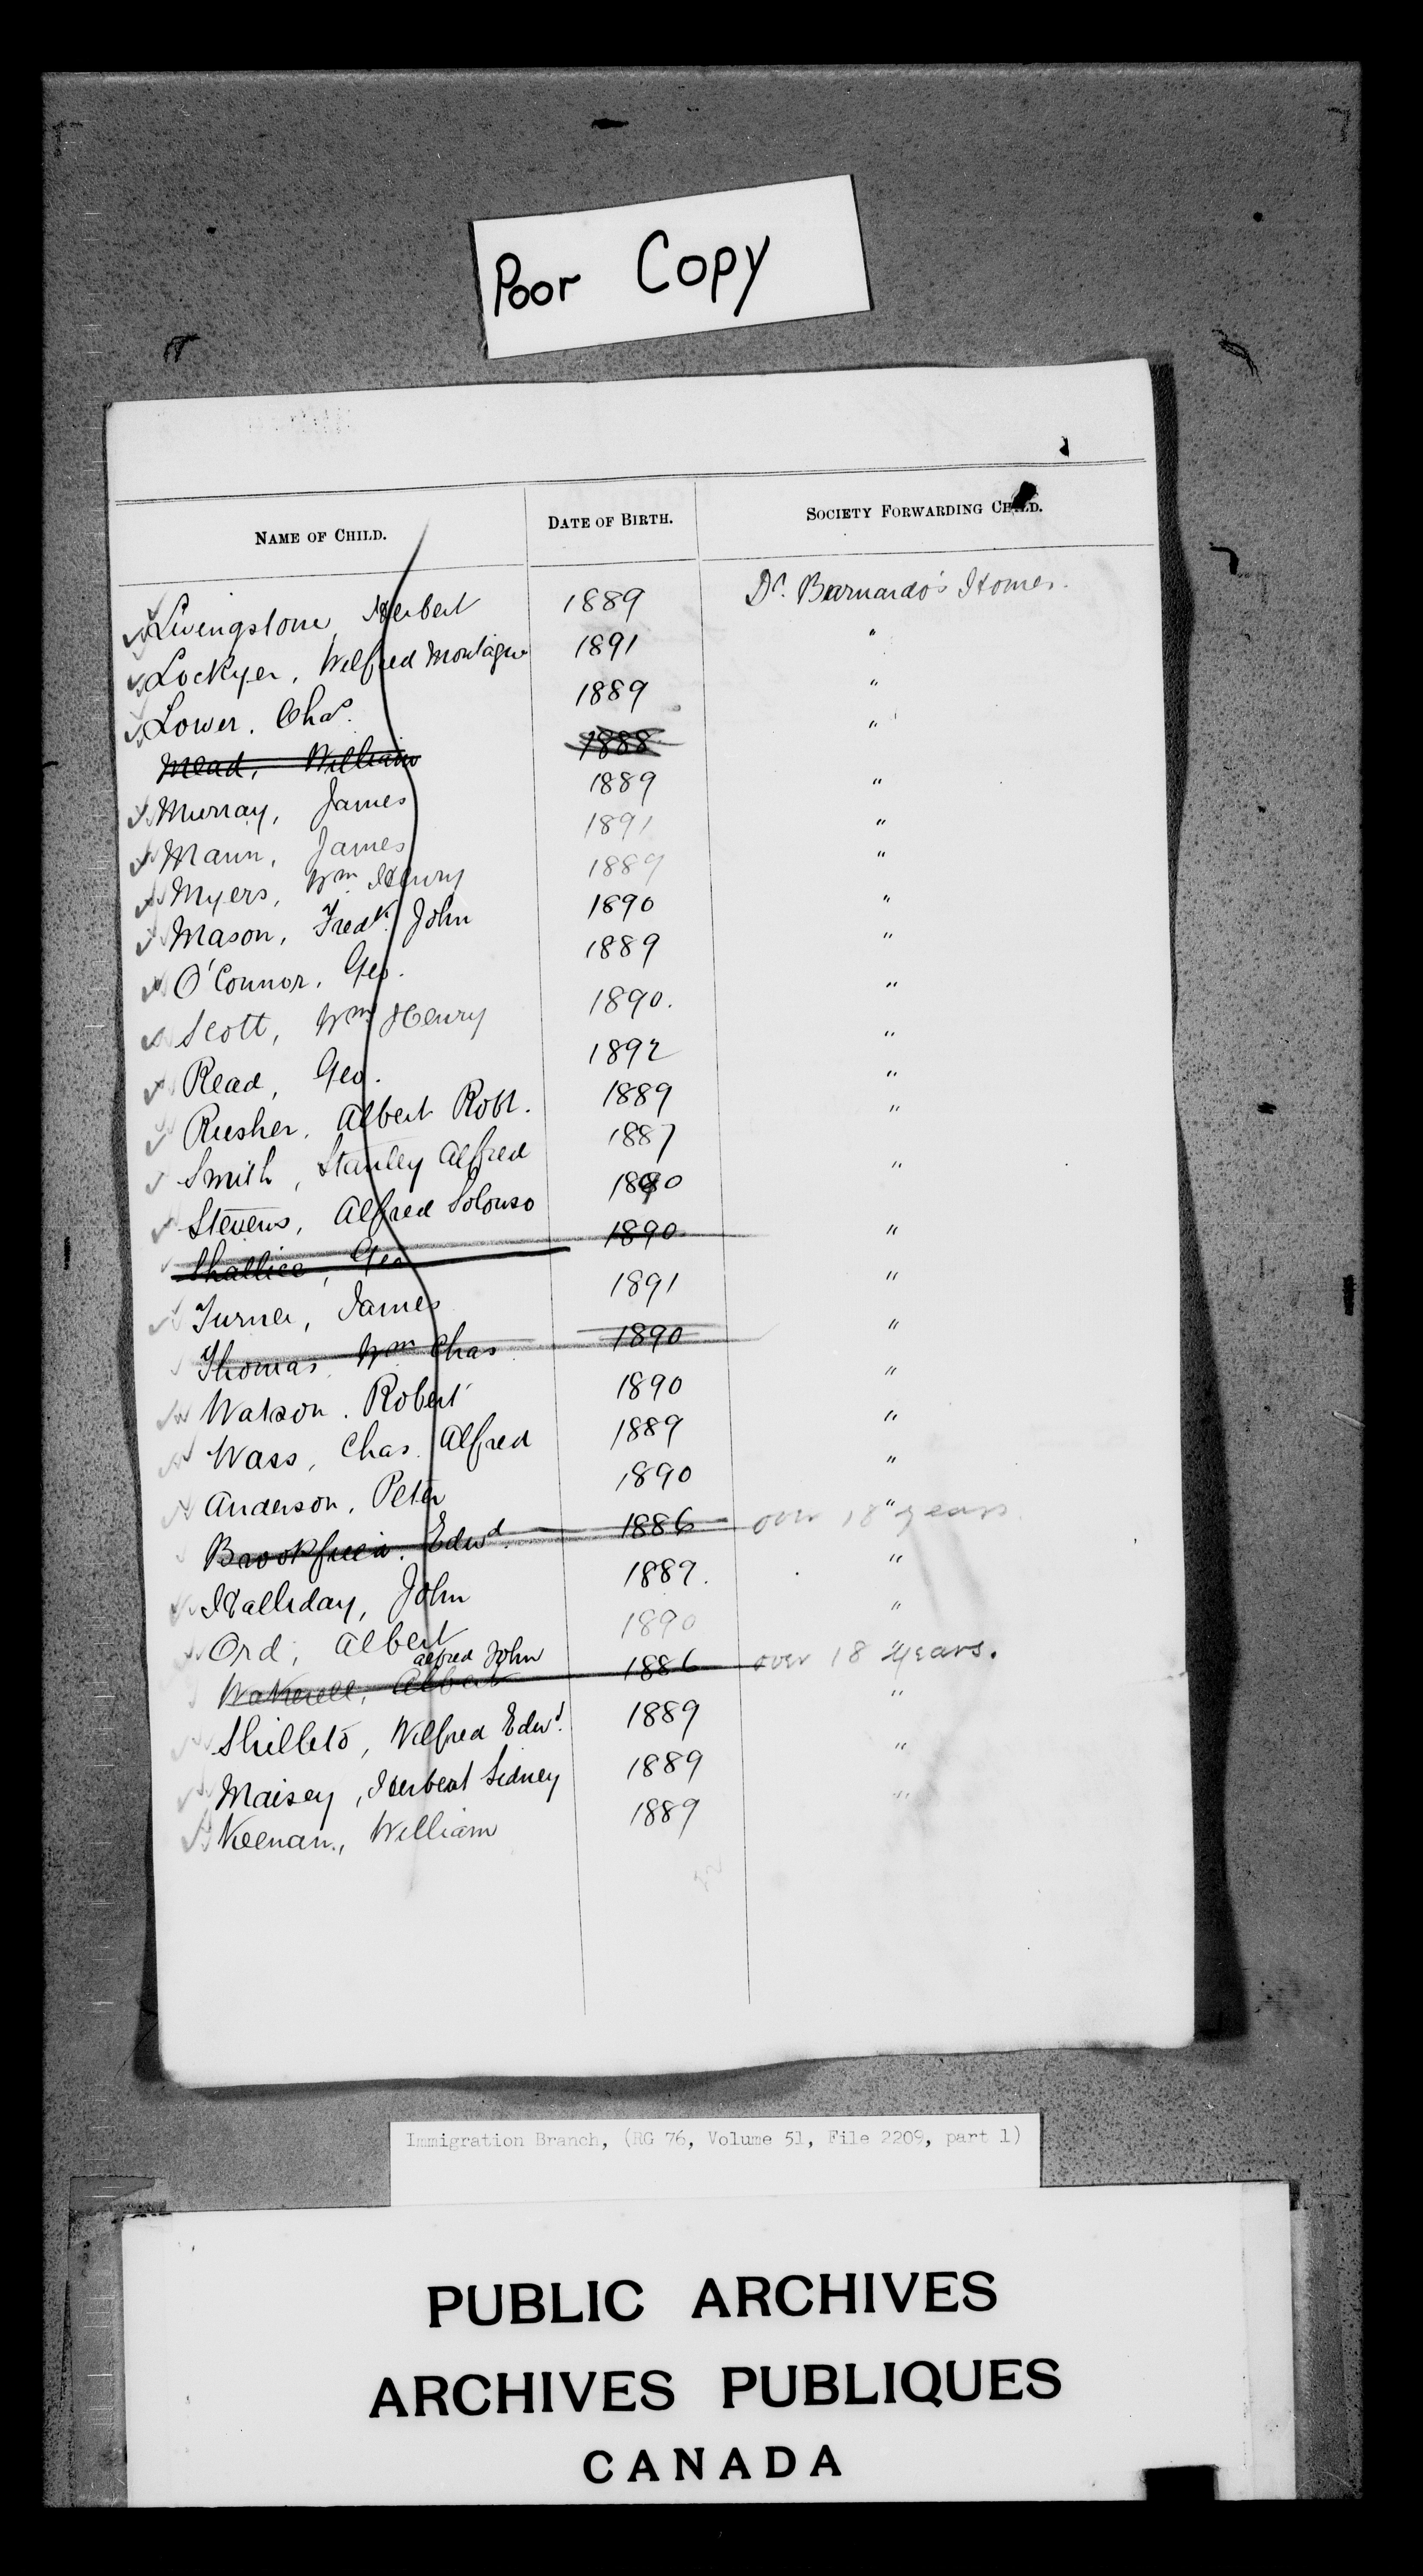 Poor Copy
NAME OF CHILD. DATE OF BIRTH. SOCIETY FORWARDING CHILD.
Livingstone, Herbert 1889 Dr. Barnardo's Homes.
Lockyer, Wilfred Montague 1891 "
Lower, Chas. 1889 "
Mead, William 1888 "
Murray, James 1889 "
Mann, James 1891 "
Myers, Wm Henry 1889 "
Mason, Fredk. John 1890 "
O'Connor, Geo. 1889 "
Scott, Wm Henry 1890. "
Read, Geo. 1892 "
Rusher, Albert Robt. 1889 "
Smith, Stanley Alfred 1887 "
Stevens, Alfred Solonso 1890 "
Shallice, Geo 1890 "
Turner, James 1891 "
Thomas, Wm Chas 1890 "
Watson, Robert 1890 "
Wass, Chas. Alfred 1889 "
Anderson, Peter 1890 "
Edwd. 1886 over 18 years "
Halliday, John 1889. "
Ord, Albert 1890 "
Alfred John
Albert 1886 over 18 years. "
Shilleto, Wilfred Edwd. 1889 "
Maisey, Herbert Sidney 1889 "
Keenan, William 1889 "
Immigration Branch, (RG 76, Volume 51, File 2209, part 1)
PUBLIC ARCHIVES
ARCHIVES PUBLIQUES
CANADA